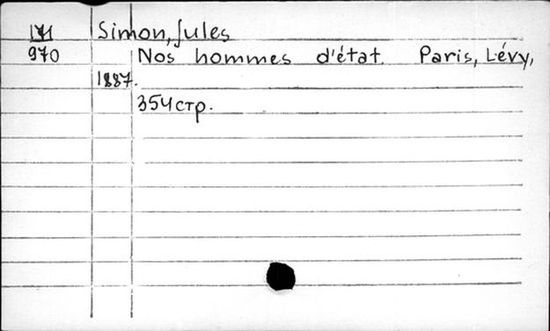 Simon, Jules
970 Nos hommes d'état. Paris, Lévy,
1887.
354 стр.